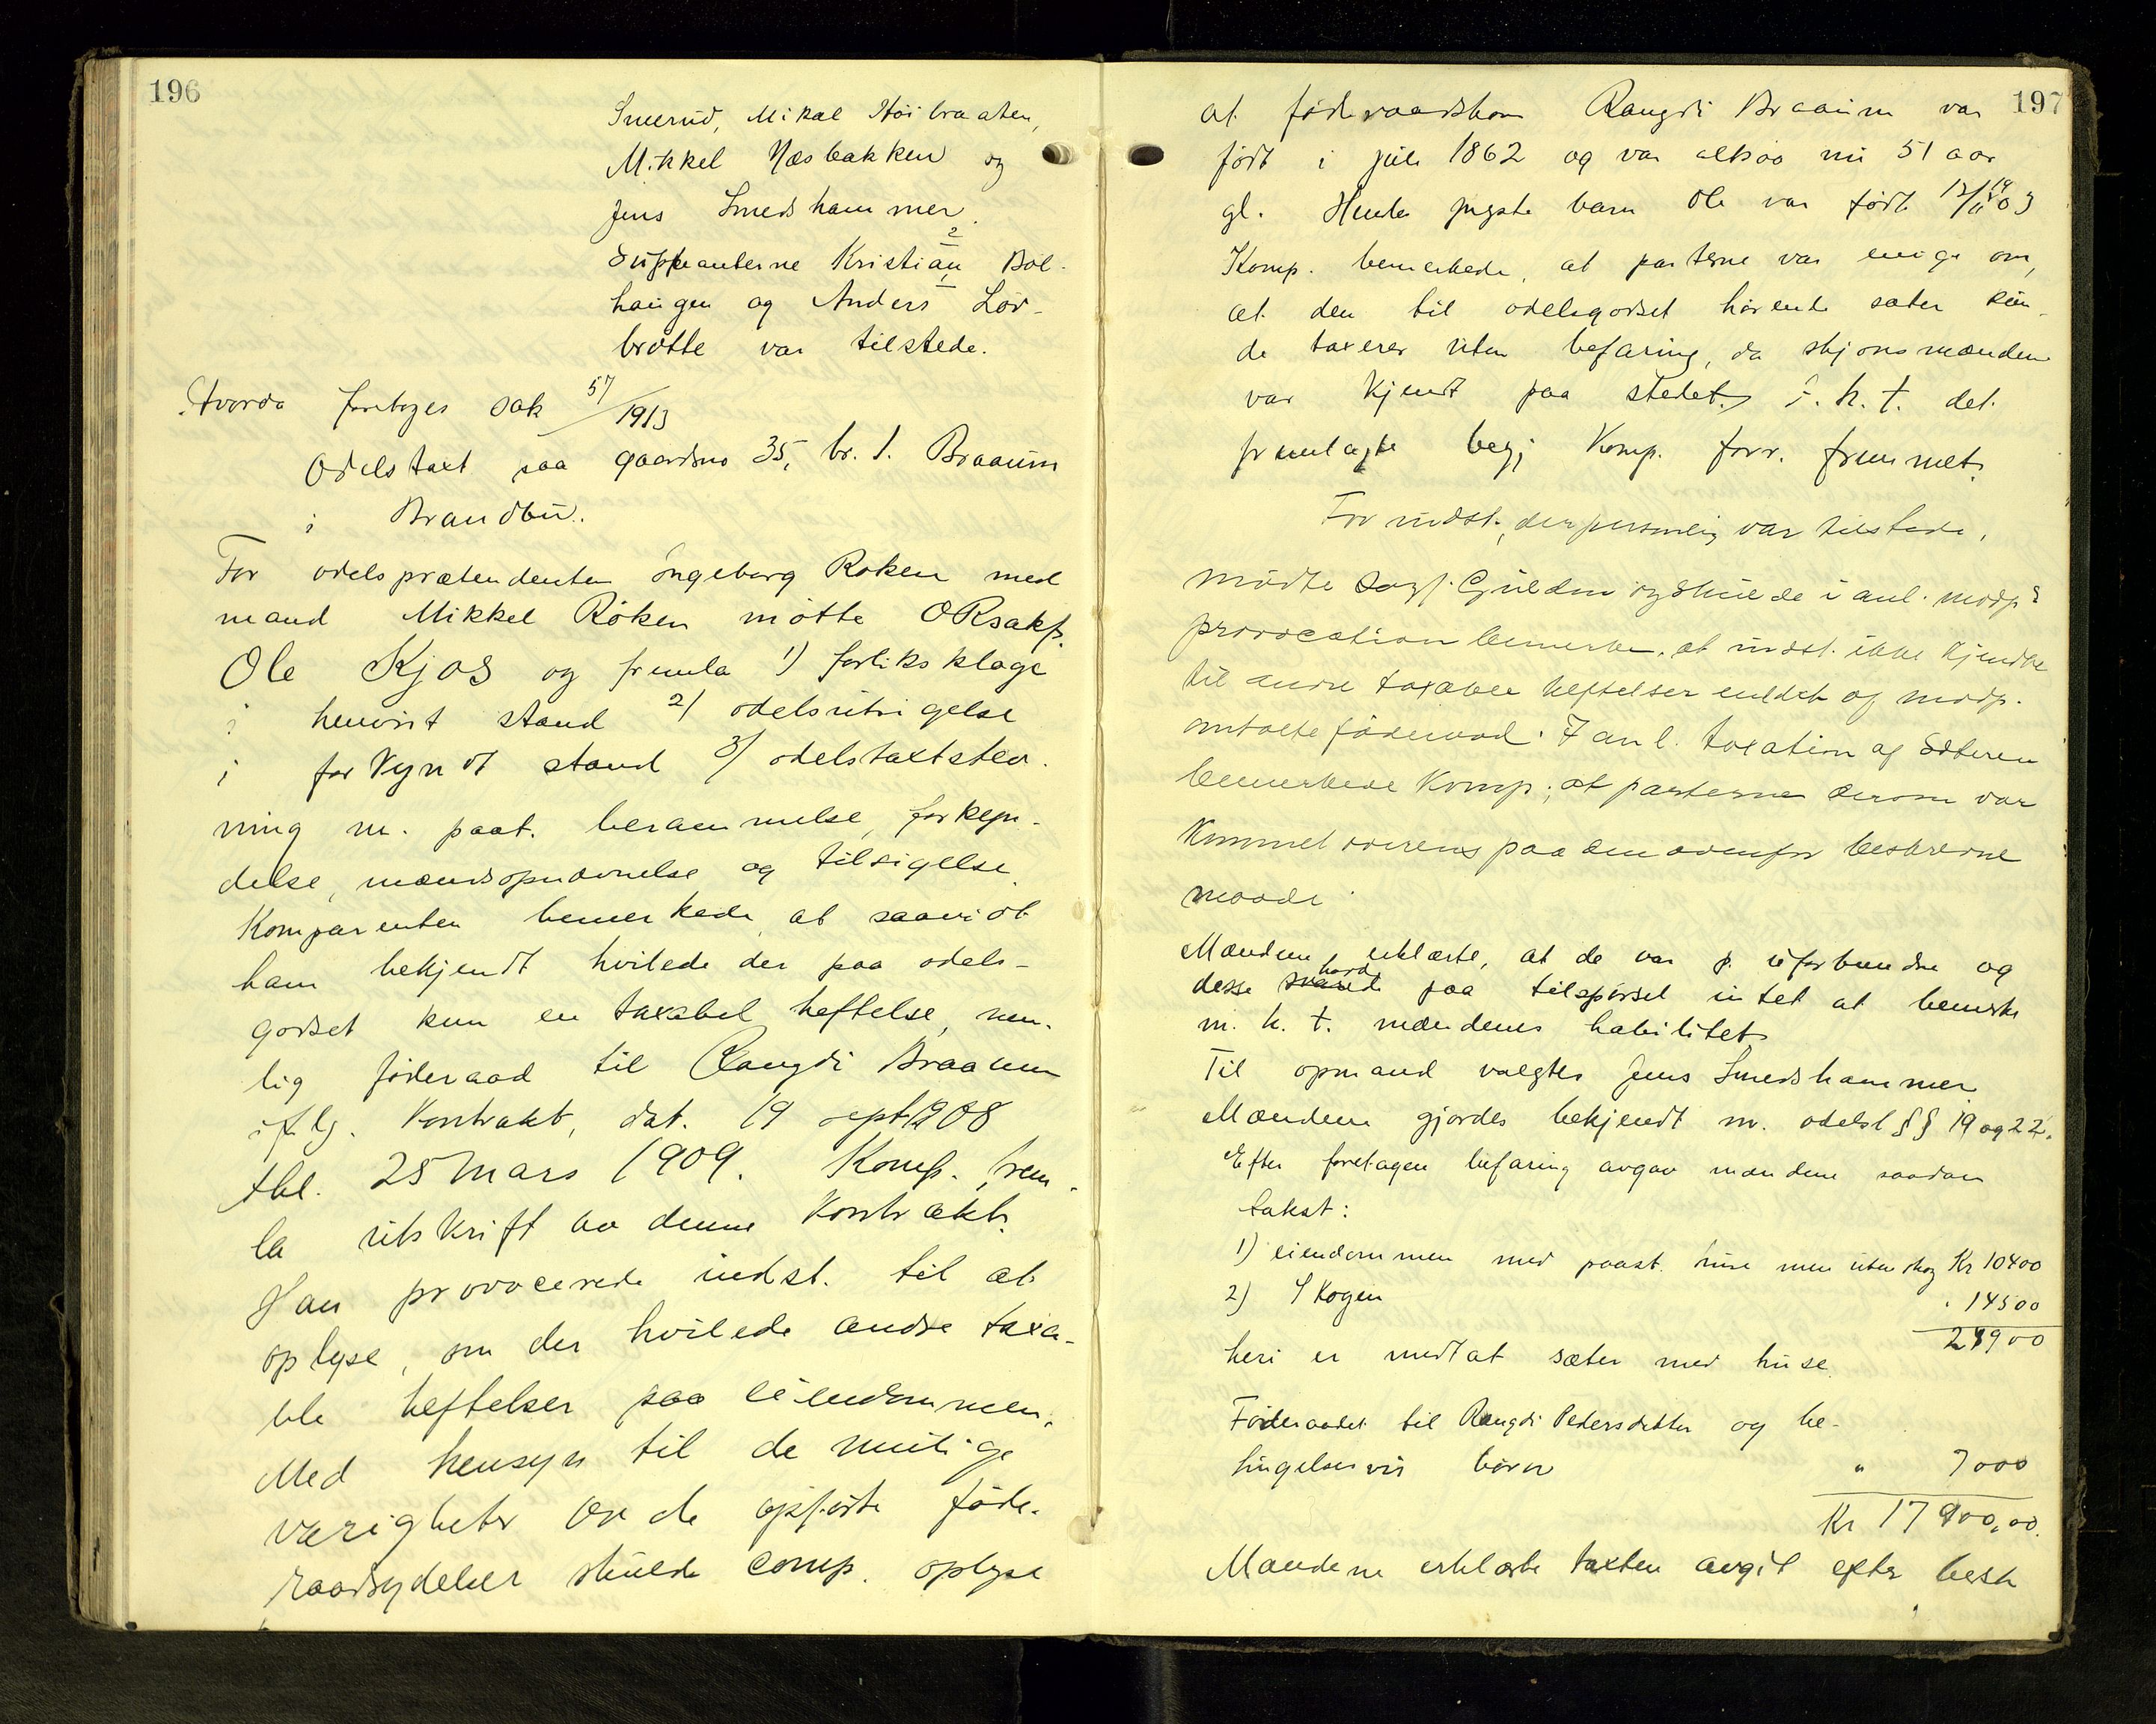 196
Smerud, Mikal Höibraaten,
Mikkel Næsbakken og
Jens Smedshammer.
2
Supleanterne Kristian Böl-
haugen og Anders Löv-
brötte var tilstede.
Hvorda foretoges sak 57/1913
Odelstaxt paa gaardsno 35, br. 1. Braaum
i Brandbu.
For odelsprætendenten Ingeborg Röken med
mand Mikkel Röken mötte ORsakf.
Ole Kjos og fremla 1) forliksklage
i henvist stand 2) odelsutsigelse
i forkyndt stand 3) odelstaxtstev-
ning m. paat. berammelse, forkyn-
delse, mændsopnævnelse og tilsigelse.
Komparenten bemerkede, at saavidt
ham bekjendt hvilede der paa odels-
godset kun en taxabel heftelse, nem-
lig föderaad til Rangdi Braaum
iflg. Kontrakt, dat. 19 sept. 1908
tbl. 25 mars 1909. Komp. frem-
la utskrift av denne kontrakt.
Han provocerede indst. til at
oplyse, om der hvilede andre taxa-
ble heftelser paa eiendommen.
Med hensyn til de mulige
værigheter av de opförte föde-
raadsydelser skulde comp. oplyse
197
at föderaadskone Rangdi Braaum var
födt i juli 1862 og var altsaa nu 51 aar
gl. Hendes yngste barn Ole var födt 12/11 1903
Komp. bemerkede, at parterne var enige om,
at den til odelsgodset hörende sæter kun-
de taxeres uten befaring, da skjönsmændene
var kjendt paa stedet. I. h. t. det
fremlagte begj. Komp. forr. fremmet.
For indst., der personlig var tilstede,
mödte Sagf. Gulden og skulde i anl. modp:s
provocation bemerke, at indst. ikke kjendte
til andre taxable heftelser end det af modp.
omtalte föderaad. I anl. taxation af Sæteren
bemerkede Komp., at parterne derom var
kommet overens paa den ovenfor beskrevne
maade.
Mændene erklærte, at de var p. uforbundne og
desse havde paa tilspörsel intet at bemerke
m. h. t. mændenes habilitet.
Til opmand valgtes Jens Smedshammer
Mændene gjordes bekjendt m. odelsl §§ 19 og 22.
Efter foretagen befaring avgav mændene saadan
takst:
1) eiendommen med paast. huse men uten skog Kr 10400
2) Skogen " 14500
24900
heri er medtat sæter med huse.
Föderaadet til Rangdi Pedersdatter og be-
tingelsesvis börn " 7000
Kr 17900,00.
Mændene erklærte taxten avgit efter beste